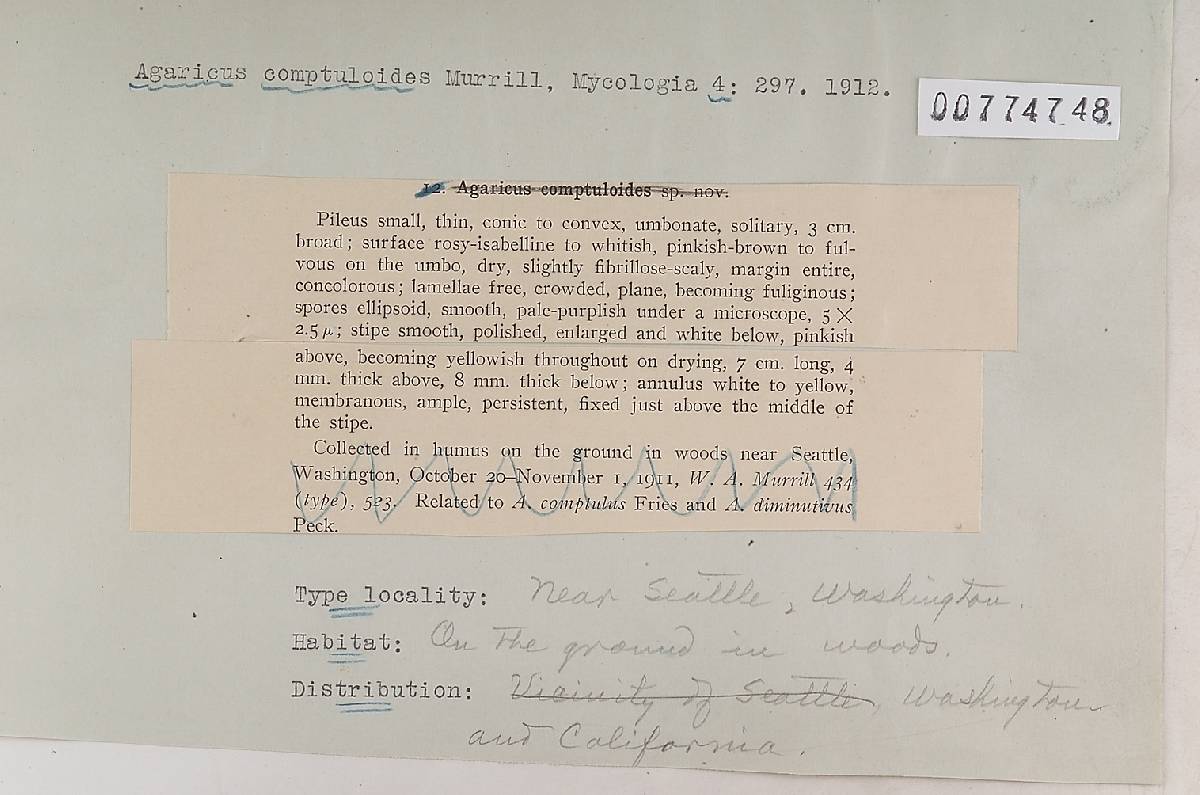 Agaricus comptuloides Murrill, Mycologia 4: 297. 1912.
00774748.
12. Agaricus comptuloides sp. nov.
Pileus small, thin, conic to convex, umbonate, solitary, 3 cm.
broad; surface rosy-isabelline to whitish, pinkish-brown to ful-
vous on the umbo, dry, slightly fibrillose-scaly, margin entire,
concolorous; lamellae free, crowded, plane, becoming fuliginous;
spores ellipsoid, smooth, pale-purplish under a microscope, 5 ×
2.5 µ; stipe smooth, polished, enlarged and white below, pinkish
above, becoming yellowish throughout on drying, 7 cm. long, 4
mm. thick above, 8 mm. thick below; annulus white to yellow,
membranous, ample, persistent, fixed just above the middle of
the stipe.
Collected in humus on the ground in woods near Seattle,
Washington, October 20–November 1, 1911, W. A. Murrill 434
(type), 523. Related to A. comptulus Fries and A. diminutivus
Peck.
Type locality: Near Seattle, Washington.
Habitat: On the ground in woods.
Distribution: Vicinity of Seattle, Washington
and California.